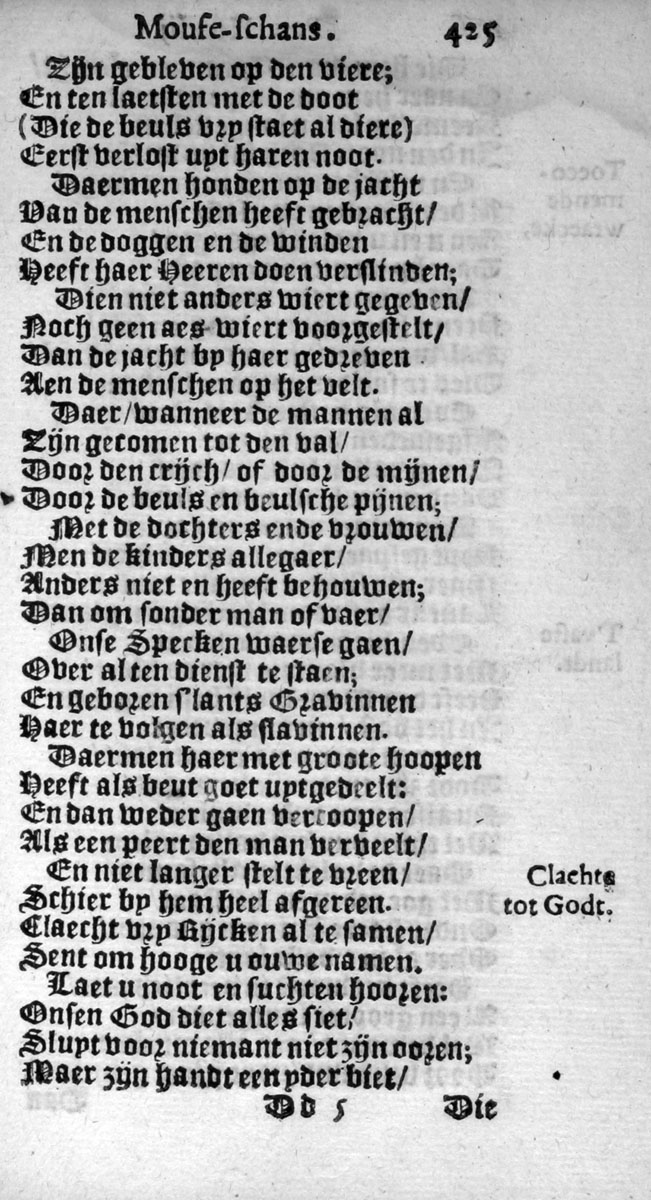 Mouse-schans. 425
Zijn gebleven op den viere;
En ten laetsten met de doot
(Die de beuls vry staet al diere)
Eerst verlost uyt haren noot.
Daermen honden op de jacht
Van de menschen heeft gebracht/
En de doggen en de winden
Heeft haer Heeren doen verslinden;
Dien niet anders wiert gegeven/
Noch geen aes wiert voorgestelt/
Dan de jacht by haer gedreven
Aen de menschen op het velt.
Daer/wanneer de mannen al
Zijn getomen tot den val/
Door den crijch/ of door de mijnen/
Door de beuls en beulsche pijnen;
Met de dochters ende vrouwen/
Men de kinders allegaer/
Anders niet en heeft behouwen;
Dan om sonder man of vaer/
Onse Specken waerse gaen/
Over al ten dienst te staen;
En geboren s'lants Gravinnen
Haer te volgen als slavinnen.
Daermen haer met groote hoopen
Heeft als beut goet uytgedeelt:
En dan weder gaen vercoopen/
Als een peert den man verveelt/
En niet langer stelt te vreen/
Schier by hem heel afgereen.
Claechts
tot Godt.
Claecht vry Rijcken al te samen/
Sent om hooge u ouwe namen.
Laet u noot en suchten hooren:
Onsen God diet alles siet/
Sluyt voor niemant niet zijn ooren;
Maer zijn handt een yder biet/
Dd 5 Die